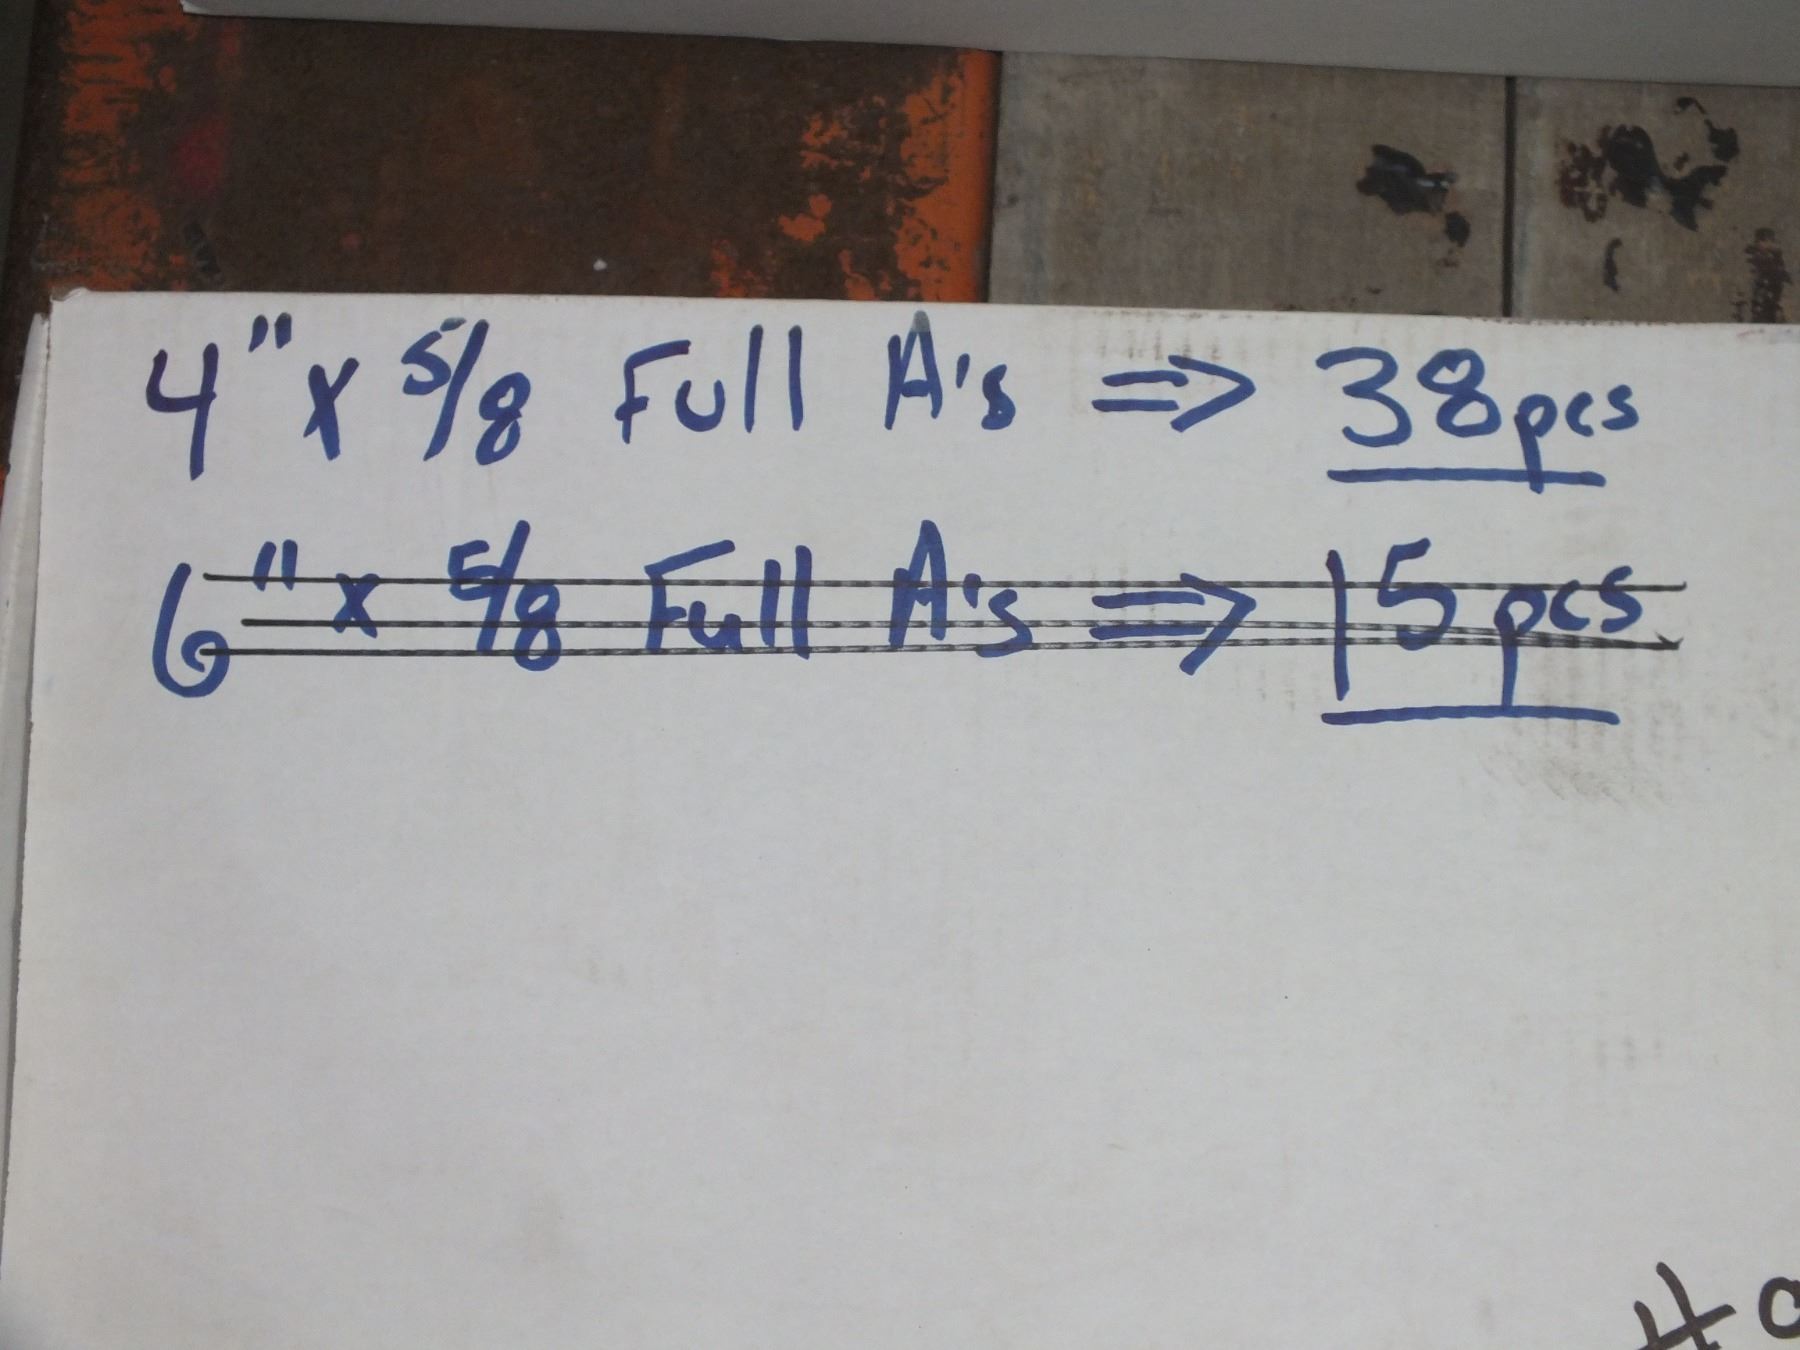 4" x 5/8 Full A's => 38pcs
6" x 5/8 Full A's => 15 pcs